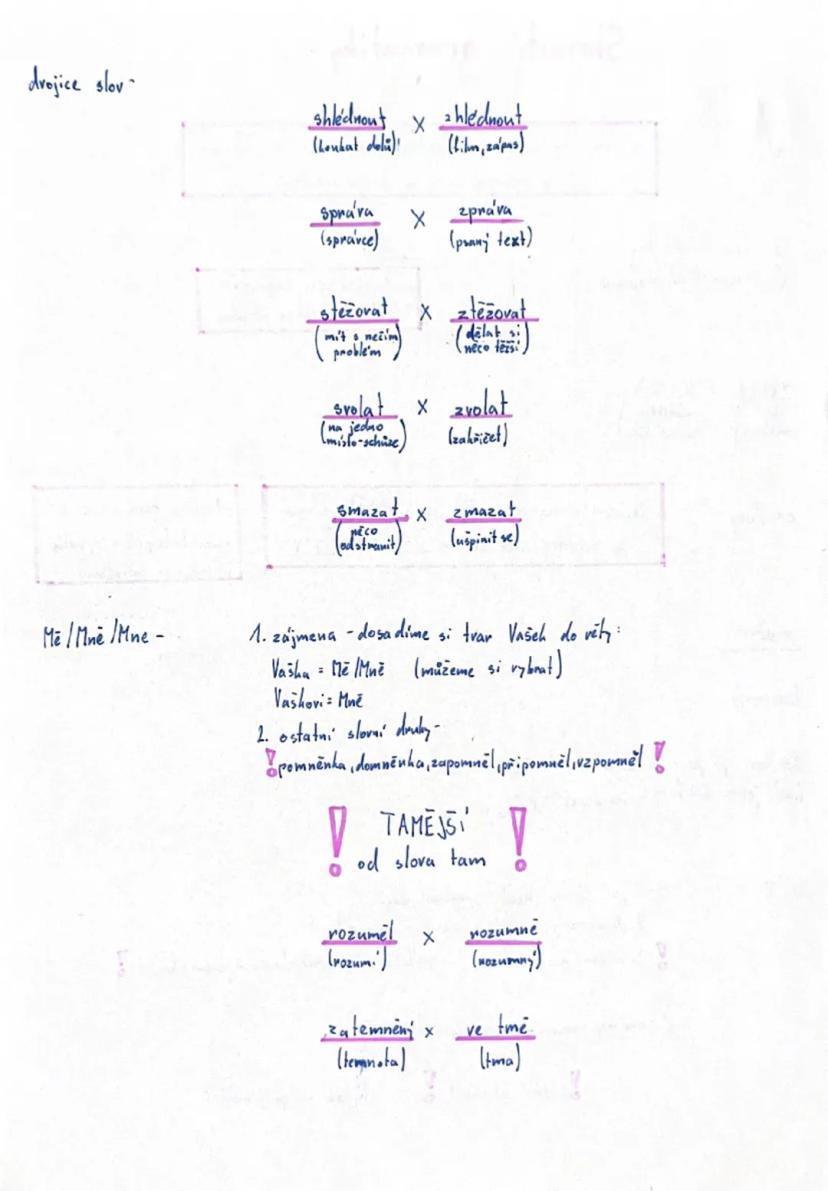 dvojice slov -
shlédnout X zhlédnout
(koukat dolů) (film, zápas)
správa X zpráva
(správce) (psaný text)
stěžovat X ztěžovat
(mít s něčím problém) (dělat si něco těžší)
svolat X zvolat
(na jedno místo-schůze) (zakřičet)
smazat X zmazat
(něco odstranit) (ušpinit se)
Mě/Mně/Mne - 1. zájmena - dosadíme si tvar Vašek do věty:
Vaška = Mě/Mně (můžeme si vybrat)
Vaškovi = Mně
2. ostatní slovní druhy -
! pomněnka, domněnka, zapomněl, připomněl, vzpomněl !
! TAMĚJŠÍ !
od slova tam
rozuměl X rozumně
(rozumí) (rozumný)
zatemněný x ve tmě
(temnota) (tma)